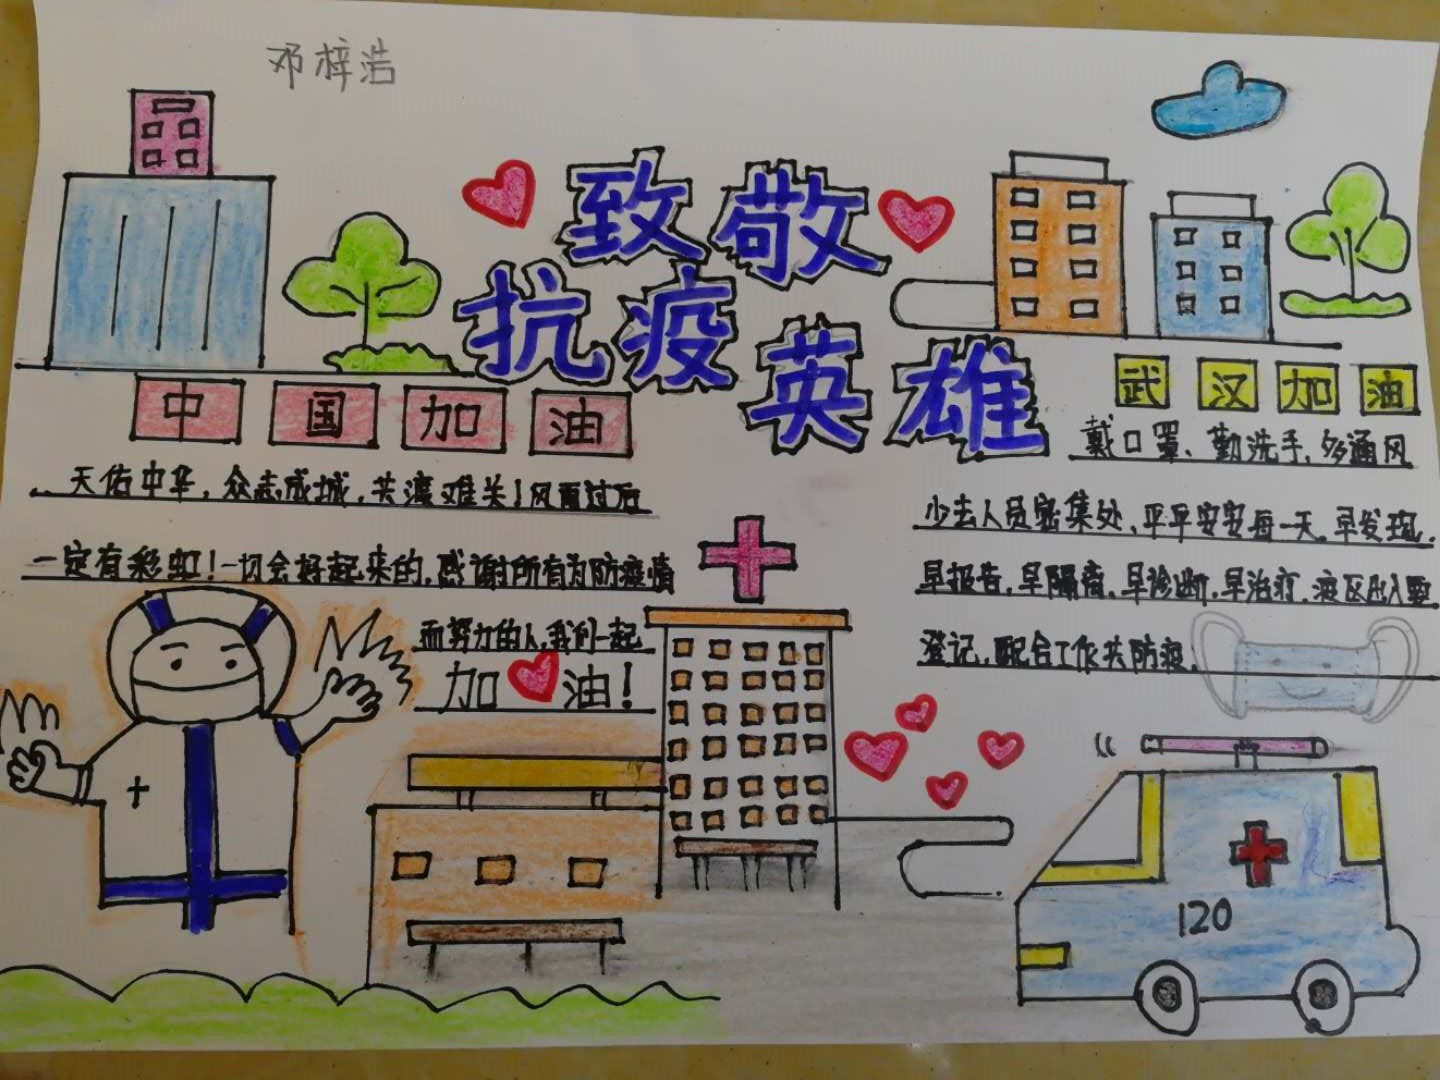 邓梓浩
致敬
抗疫
英雄
中国加油
天佑中华，众志成城，共渡难关！风雨过后
一定有彩虹！一切会好起来的，感谢所有为防疫情
而努力的人，我们一起
加油！
武汉加油
戴口罩、勤洗手，多通风
少去人员密集处、平平安安每一天。早发现，
早报告，早隔离，早诊断，早治疗，疫区出入要
登记，配合工作共防疫。
120